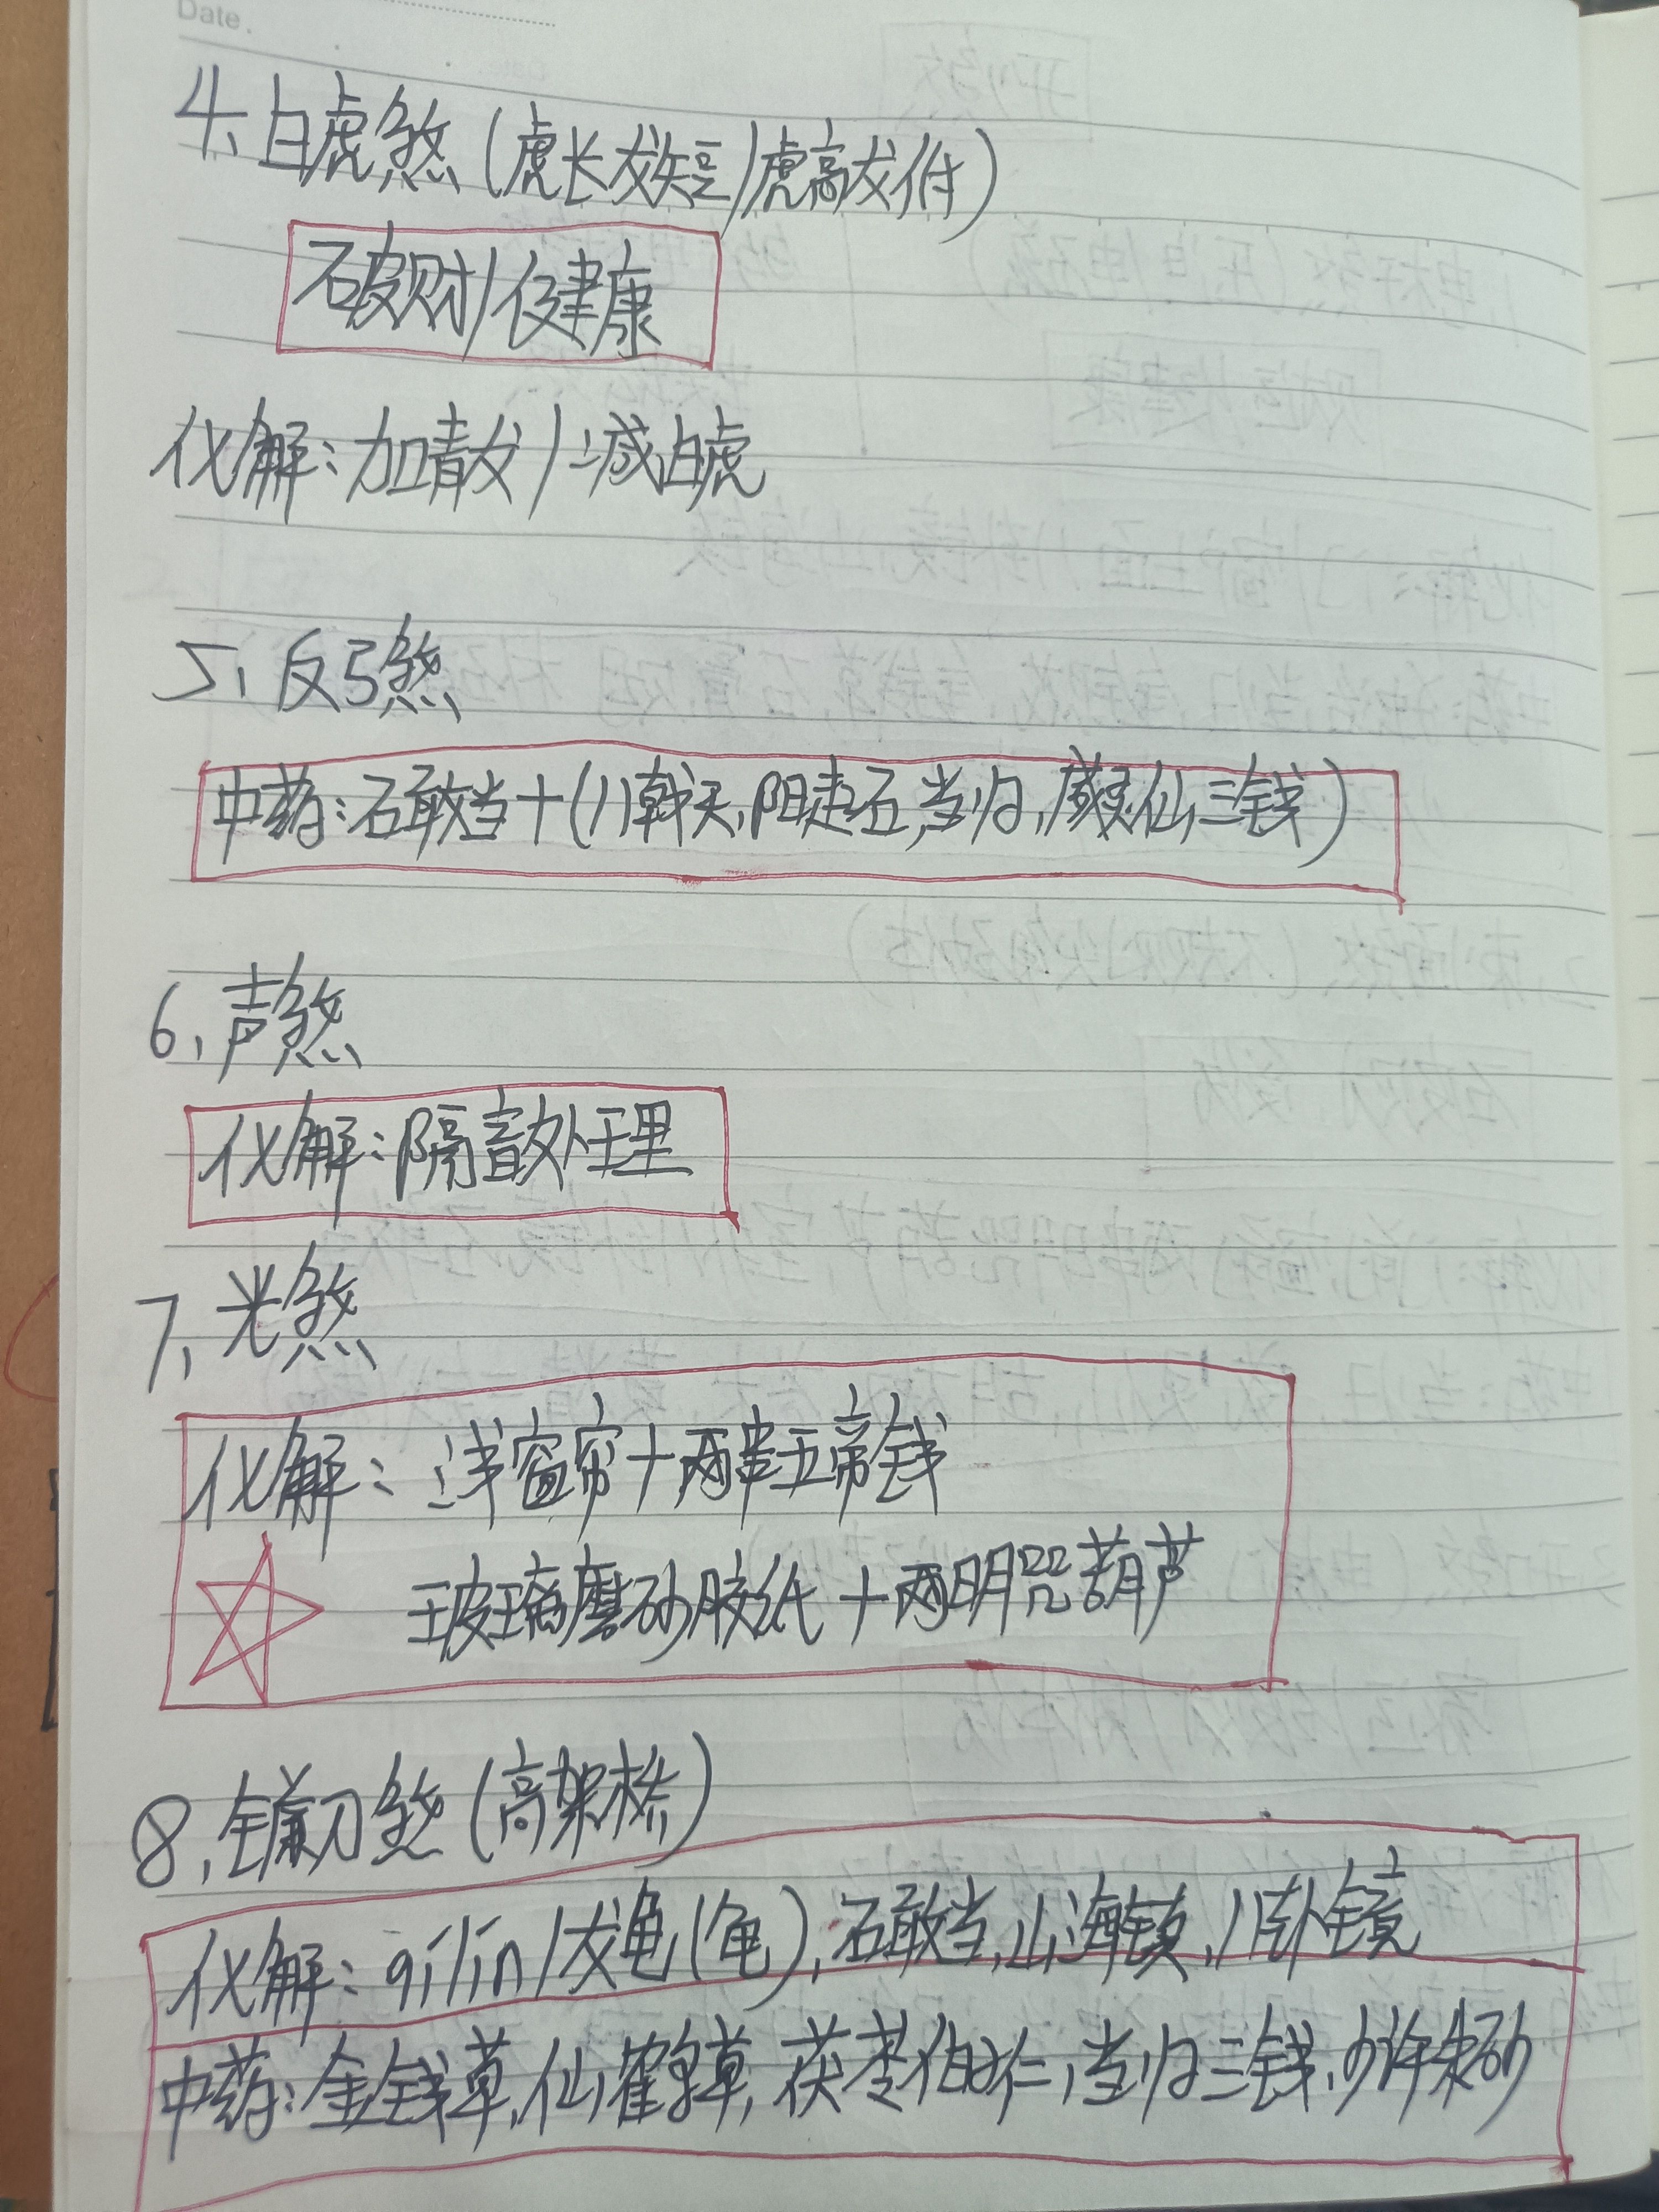 Date.
4、白虎煞(虎长龙短/虎高龙低)
破财/健康
化解:加青龙/减白虎
5、反弓煞
中药:石敢当+(川戟天,阳起石,当归,威灵仙,三钱)
6、声煞
化解:隔音处理
7、光煞
化解:浅窗帘+两串五帝钱
玻璃磨砂胶纸+两明咒葫芦
8、镰刀煞(高架桥)
化解:qilin/龙龟(龟),石敢当,山海镇,八卦镜
中药:金钱草,仙鹤草,茯苓,柏仁,当归三钱,少许朱砂